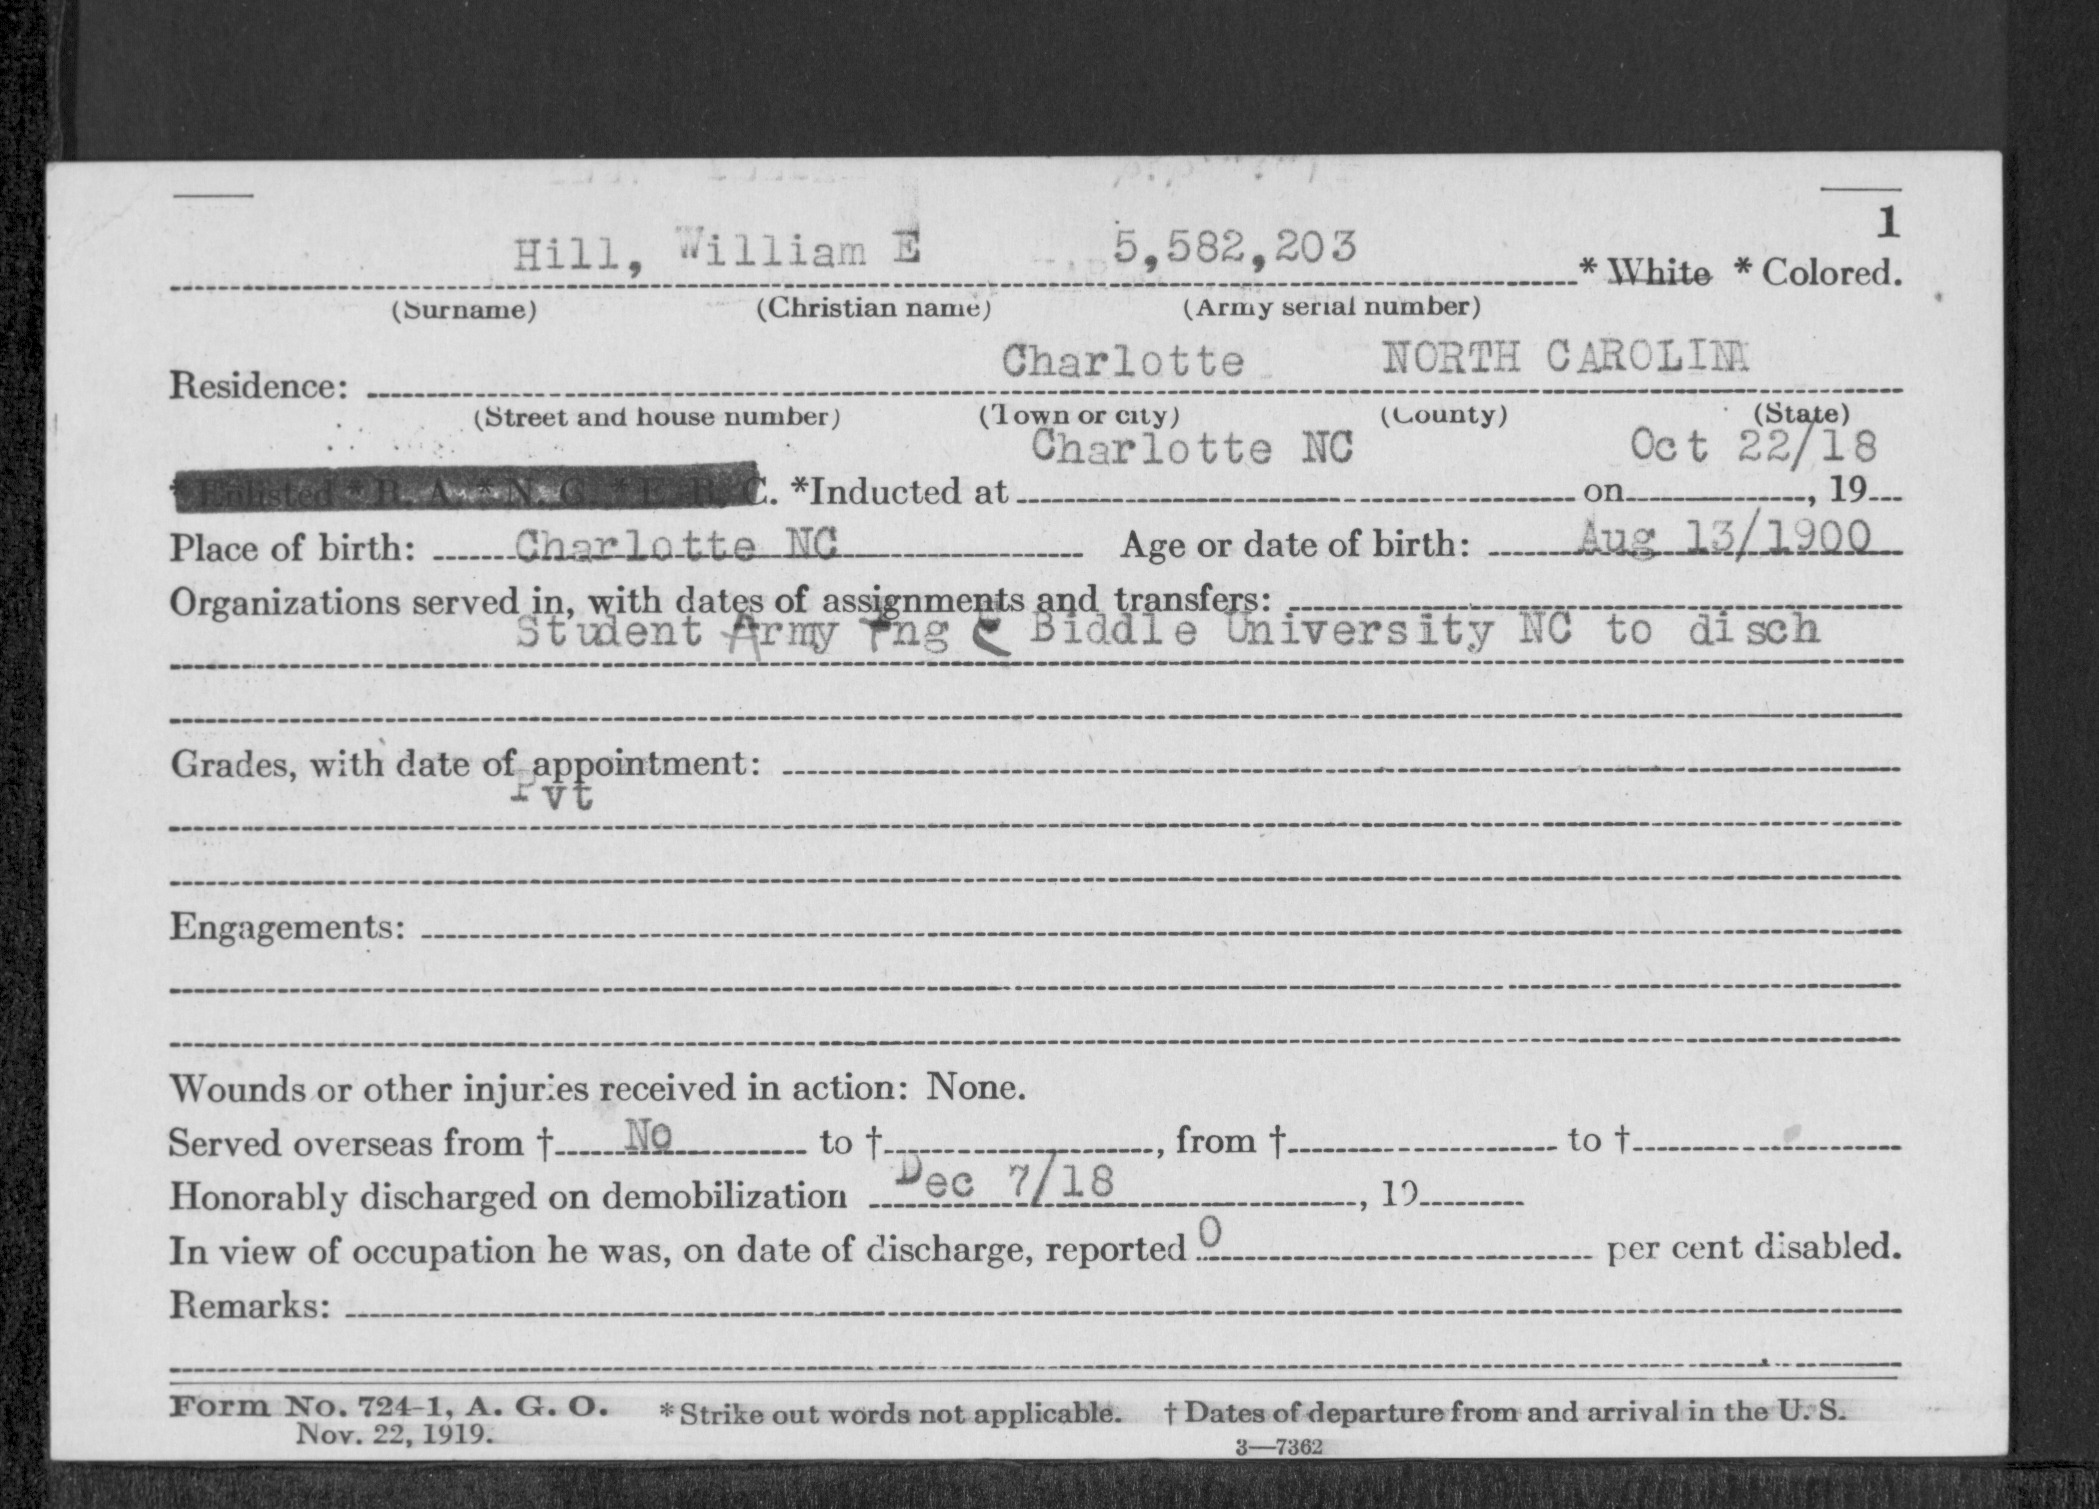 1
Hill, William E 5,582,203 * White * Colored.
(Surname) (Christian name) (Army serial number)
Charlotte NORTH CAROLINA
Residence:
(Street and house number) (Town or city) (County) (State)
Charlotte NC Oct 22/18
* Enlisted * R. A. * N. G. * E. R. C. *Inducted at on , 19
Place of birth: Charlotte NC Age or date of birth: Aug 13/1900
Organizations served in, with dates of assignments and transfers:
Student Army Tng C Biddle University NC to disch
Grades, with date of appointment:
Pvt
Engagements:
Wounds or other injuries received in action: None.
Served overseas from † No to † , from † to †
Honorably discharged on demobilization Dec 7/18 , 19
In view of occupation he was, on date of discharge, reported 0 per cent disabled.
Remarks:
Form No. 724-1, A. G. O. * Strike out words not applicable. † Dates of departure from and arrival in the U. S.
Nov. 22, 1919.
3—7362